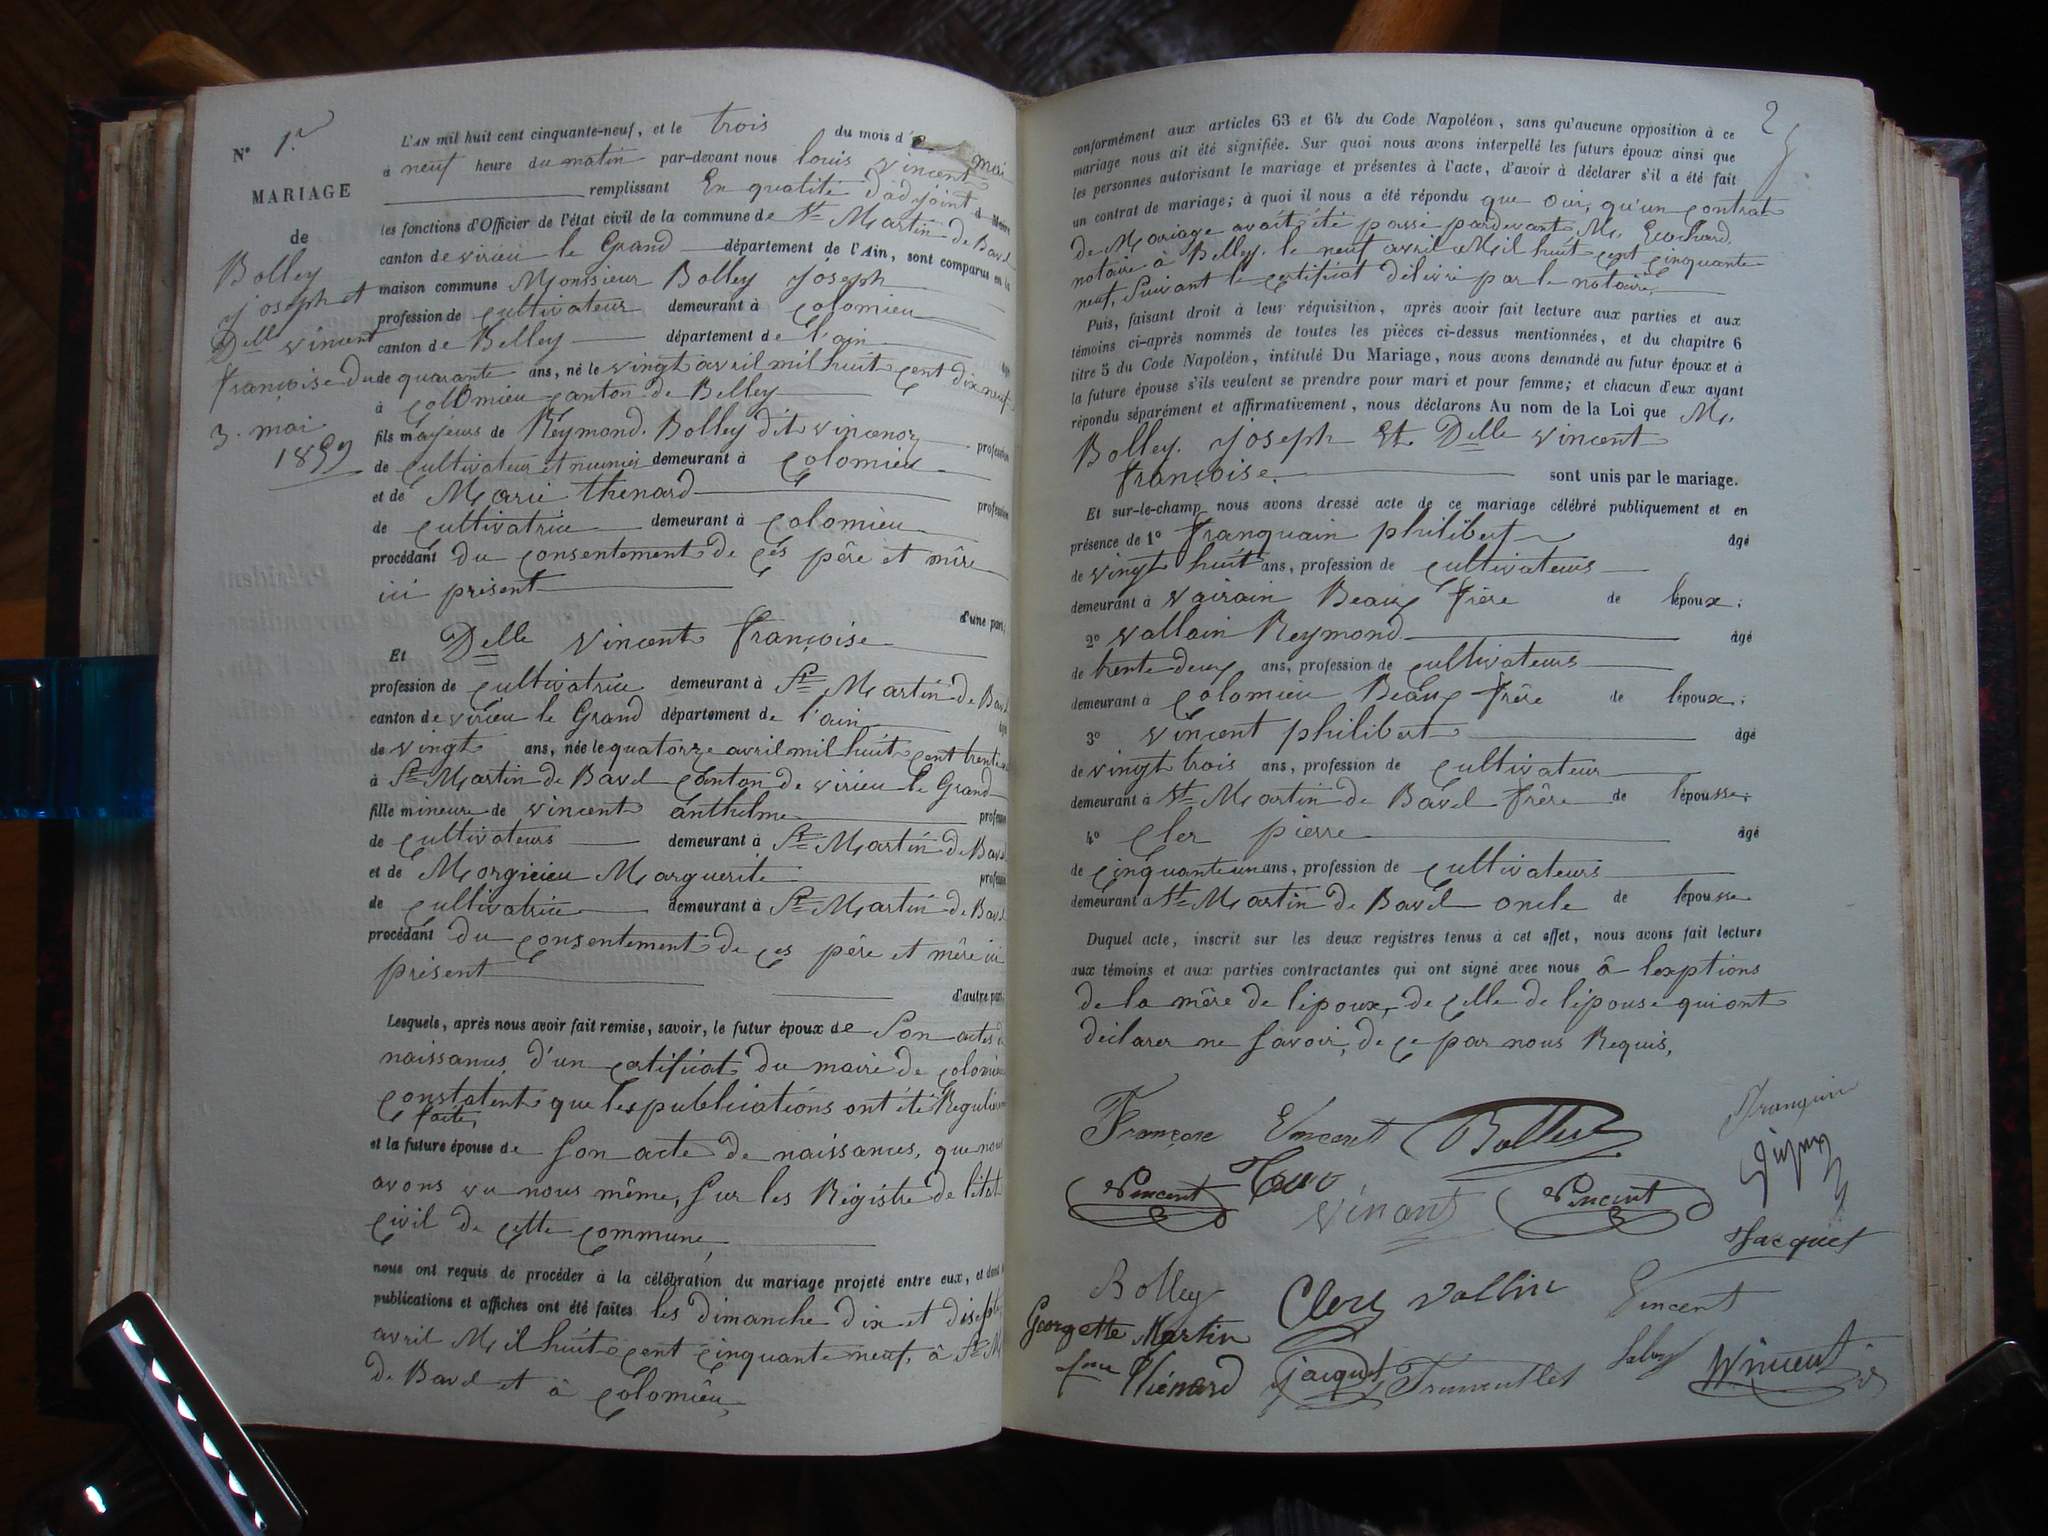 N° 1.er
MARIAGE
de
Bolley
joseph et
Delle vincent
françoise du
3. mai
1859
L'AN mil huit cent cinquante-neuf, et le trois du mois d' mai
à neuf heure du matin par-devant nous louis vincent
remplissant En qualité d'adjoint
les fonctions d'Officier de l'état civil de la commune de St Martin de Bavel
canton de virieu le Grand département de l'Ain, sont comparus en la
maison commune Monssieur Bolley joseph
profession de cultivateur demeurant à colomieu
canton de Belley département de l'ain
de quarante ans, né le vingt avril mil huit cent dix neuf
à colomieu canton de Belley
fils majeurs de Reymond. Bolley dit profession
de cultivateur et demeurant à colomieu
et de Marie thenard profession
de cultivatrice demeurant à colomieu
procédant du consentement de ces père et mère
ici présent
d'une part,
Et Delle vincent françoise
profession de cultivatrice demeurant à St Martin de Bavel
canton de virieu le Grand département de l'ain
de vingt ans, née le quatorze avril mil huit cent trente
à St Martin de Bavel canton de virieu le Grand
fille mineure de vincent anthelme profession
de cultivateurs demeurant à St Martin de Bavel
et de Morgieieu Marguerite profession
de cultivatrice demeurant à St Martin de Bavel
procédant du consentement de ces père et mère ici
présent
d'autre part.
Lesquels, après nous avoir fait remise, savoir, le futur époux de Son actes de
naissances, d'un certificat du maire de colomieu
constatent que les publications ont été Regulierement
faite,
et la future épouse de Son acte de naissances, que nous
avons vu nous même, Sur les Régistre de l'état
civil de cette commune,
nous ont requis de procéder à la célébration du mariage projeté entre eux, et dont les
publications et affiches ont été faites les dimanche dix et disept
avril Mil huit cent cinquante neuf, à St M
de Bavel et à colomieu,
2
conformément aux articles 63 et 64 du Code Napoléon, sans qu'aucune opposition à ce
mariage nous ait été signifiée. Sur quoi nous avons interpellé les futurs époux ainsi que
les personnes autorisant le mariage et présentes à l'acte, d'avoir à déclarer s'il a été fait
un contrat de mariage; à quoi il nous a été répondu que oui, qu'un contrat
de Mariage avait été passé pardevant Me
notaire à Belley. le neuf avril Mil huit cent cinquante
neuf, Suivant le certificat délivré par le notaire,
Puis, faisant droit à leur réquisition, après avoir fait lecture aux parties et aux
témoins ci-après nommés de toutes les pièces ci-dessus mentionnées, et du chapitre 6
titre 5 du Code Napoléon, intitulé Du Mariage, nous avons demandé au futur époux et à
la future épouse s'ils veulent se prendre pour mari et pour femme; et chacun d'eux ayant
répondu séparément et affirmativement, nous déclarons Au nom de la Loi que Mr
Bolley. joseph Et Delle vincent
françoise. sont unis par le mariage.
Et sur-le-champ nous avons dressé acte de ce mariage célébré publiquement et en
présence de 1° franquain philibert âgé
de vingt huit ans, profession de cultivateurs
demeurant à vairain Beaux frère de lépoux;
2° vallain Reymond âgé
de trente deux ans, profession de cultivateurs
demeurant à colomieu Beaux frère de lépoux;
3° vincent philibert âgé
de vingt trois ans, profession de cultivateur
demeurant à St Martin de Bavel frère de lépousse;
4° cler pierre âgé
de cinquante un ans, profession de cultivateurs
demeurant à St Martin de Bavel oncle de lépousse
Duquel acte, inscrit sur les deux registres tenus à cet effet, nous avons fait lecture
aux témoins et aux parties contractantes qui ont signé avec nous à lexptions
de la mère de lépoux, de celle de lépouse qui ont
déclarer ne Savoir, de ce par nous Requis,
Françoise Vincent Bolley
Franquin
Vincent Vincent
Vincent
Jacquet
Bolley Clerc Vallin Vincent
Georgette Martin
Thénard jacquet Vincent